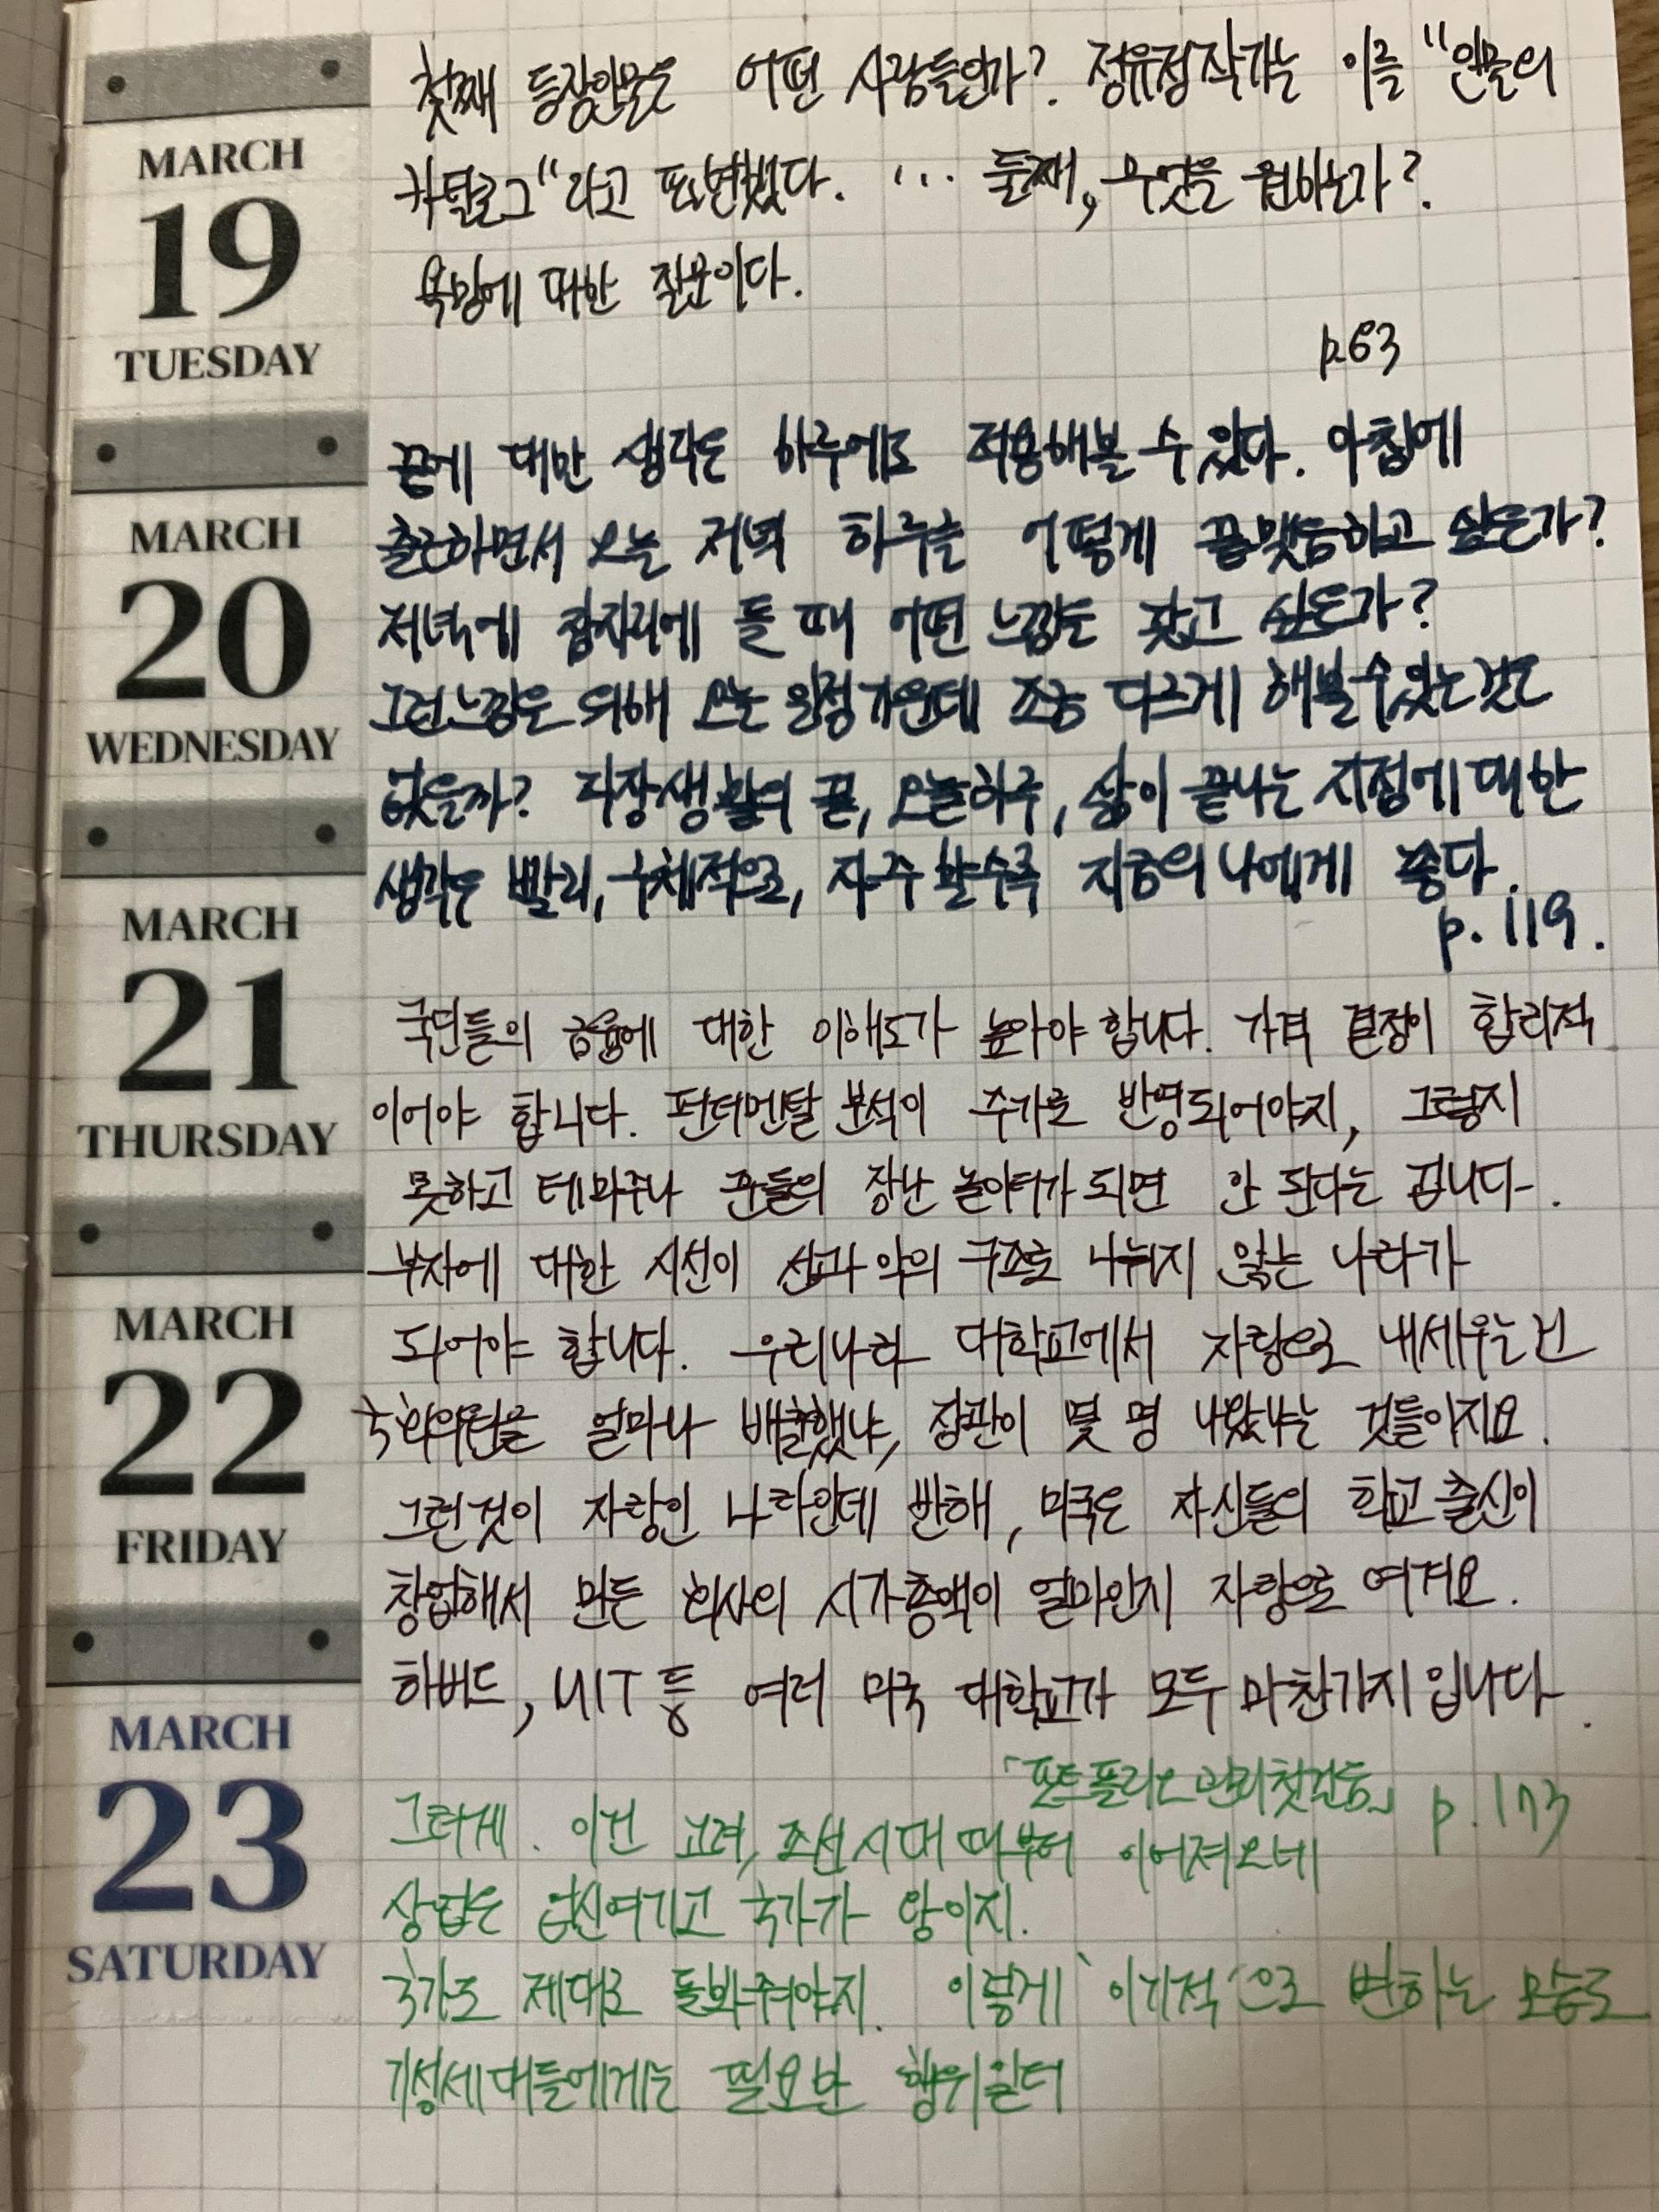 MARCH
19
TUESDAY
첫째 등장인물은 어떤 사람들인가? 정유정작가는 이를 "인물의
카탈로그"라고 표현했다. ... 둘째, 무엇을 원하는가?
욕망에 대한 질문이다.
p.63
MARCH
20
WEDNESDAY
끝에 대한 생각은 하루에도 적용해볼 수 있다. 아침에
출근하면서 오늘 저녁 하루를 어떻게 끝맺음하고 싶은가?
저녁에 잠자리에 들 때 어떤 느낌을 갖고 싶은가?
그런 느낌을 위해 오늘 일정 가운데 조금 다르게 해볼 수 있는 것은
없을까? 직장생활의 끝, 오늘하루, 삶이 끝나는 지점에 대한
생각은 빨리, 구체적으로, 자주 할수록 지금의 나에게 좋다.
p. 119.
MARCH
21
THURSDAY
국민들의 금융에 대한 이해도가 높아야 합니다. 가격 결정이 합리적
이어야 합니다. 펀더멘탈 분석이 주가로 반영되어야지, 그렇지
못하고 테마주나 꾼들의 장난 놀이터가 되면 안 된다는 겁니다.
부자에 대한 시선이 선과 악의 구조로 나뉘지 않는 나라가
MARCH
22
FRIDAY
되어야 합니다. 우리나라 대학교에서 자랑으로 내세우는 건
국회의원을 얼마나 배출했냐, 장관이 몇 명 나왔냐는 것들이지요.
그런것이 자랑인 나라인데 반해, 미국은 자신들의 학교 출신이
창업해서 만든 회사의 시가총액이 얼마인지 자랑으로 여겨요.
하버드, MIT 등 여러 미국 대학교가 모두 마찬가지입니다.
「포트폴리오 관리 첫걸음」 p.173
MARCH
23
SATURDAY
그러게. 이건 고려, 조선시대 때부터 이어져오네
상업은 업신여기고 국가가 왕이지.
국가도 제대로 돌봐줘야지. 이렇게 '이기적'으로 변하는 모습도
기성세대들에게는 필요한 행위일터